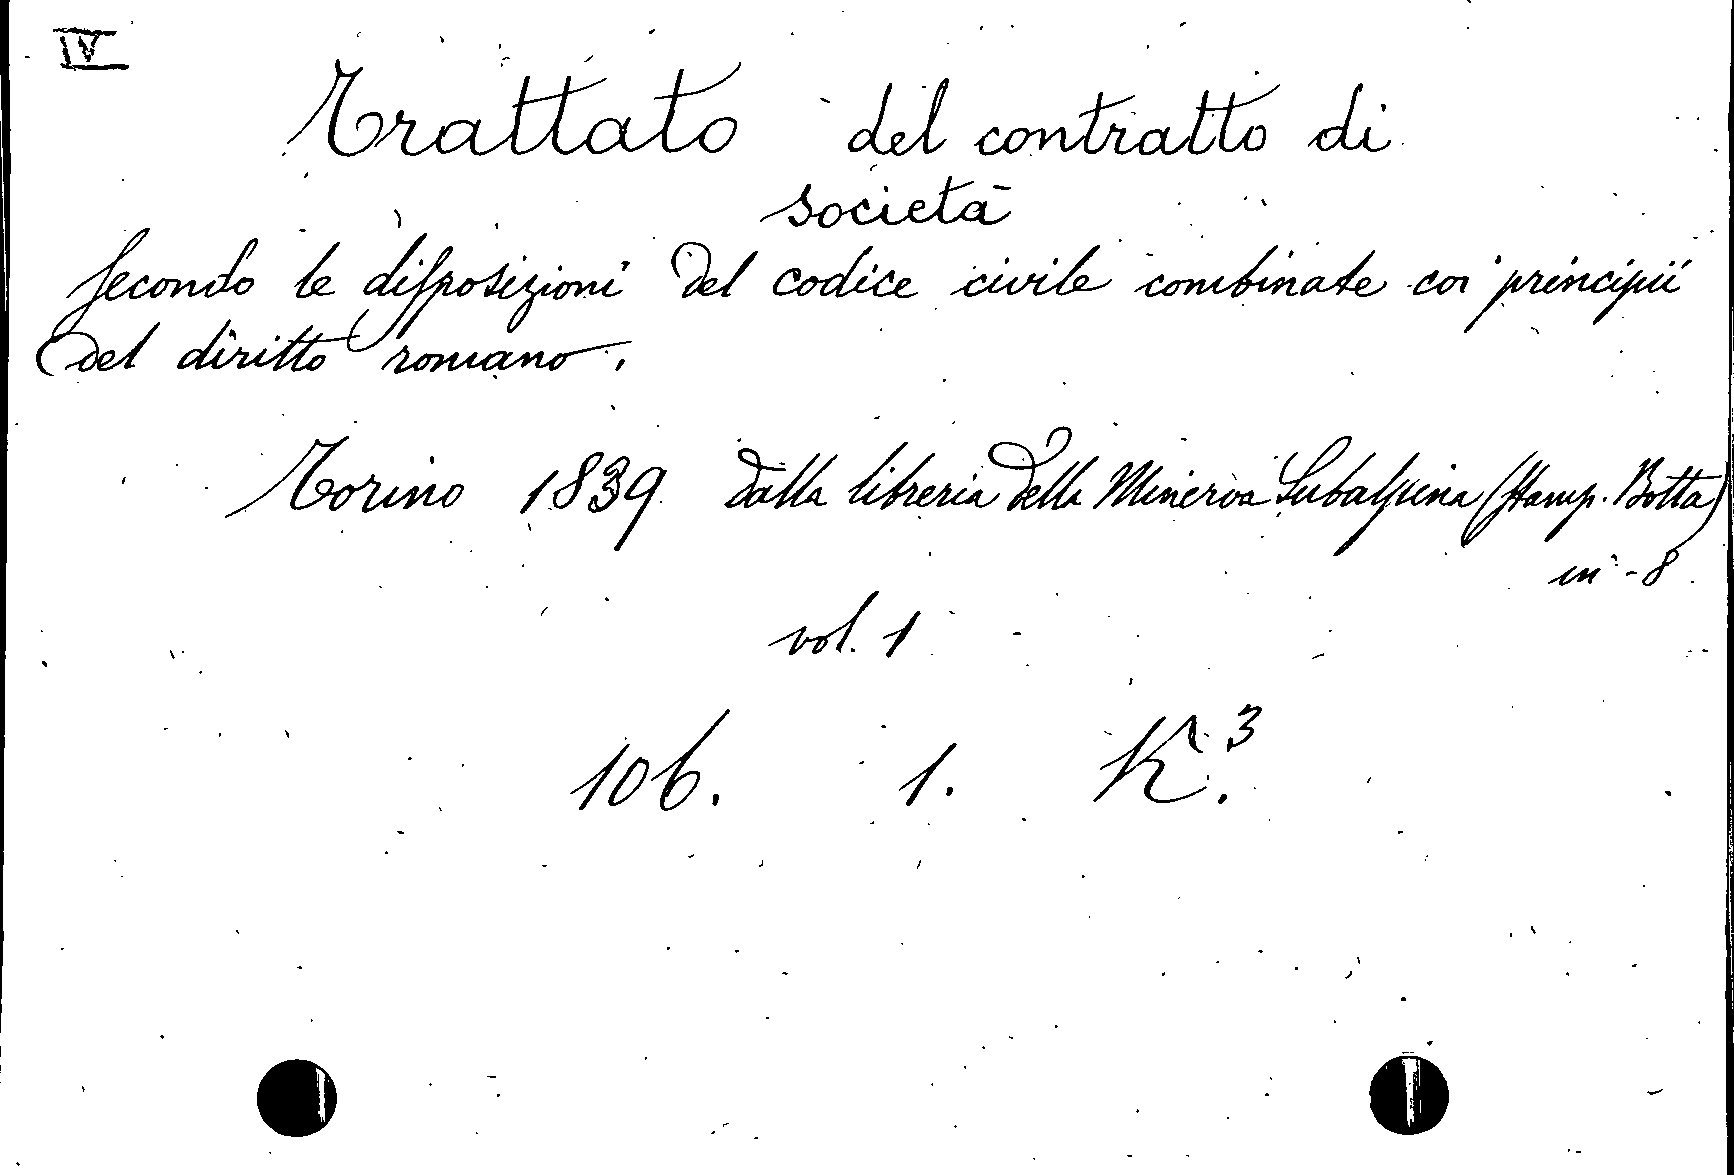 IV
Trattato del contratto di
società
secondo le disposizioni del codice civile combinate coi principii
del diritto romano.
Torino 1839 dalla libreria della Minerva Subalpina (stamp. Botta)
in-8
vol. 1
106. 1. K.³